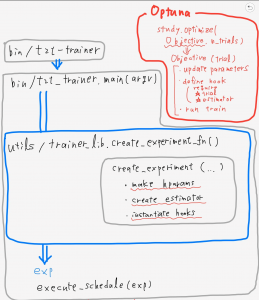 Optuna
study.optimize(
Objective, n_trials)
Objective (trial)
· update parameters
· define hook
( require
★ trial
★ estimator
· run train
bin / t2t-trainer
bin / t2t_trainer.main(argv)
utils / trainer_lib.create_experiment_fn()
create_experiment (...)
· make hparams
· create estimator
· instantiate hooks
exp
execute_schedule(exp)